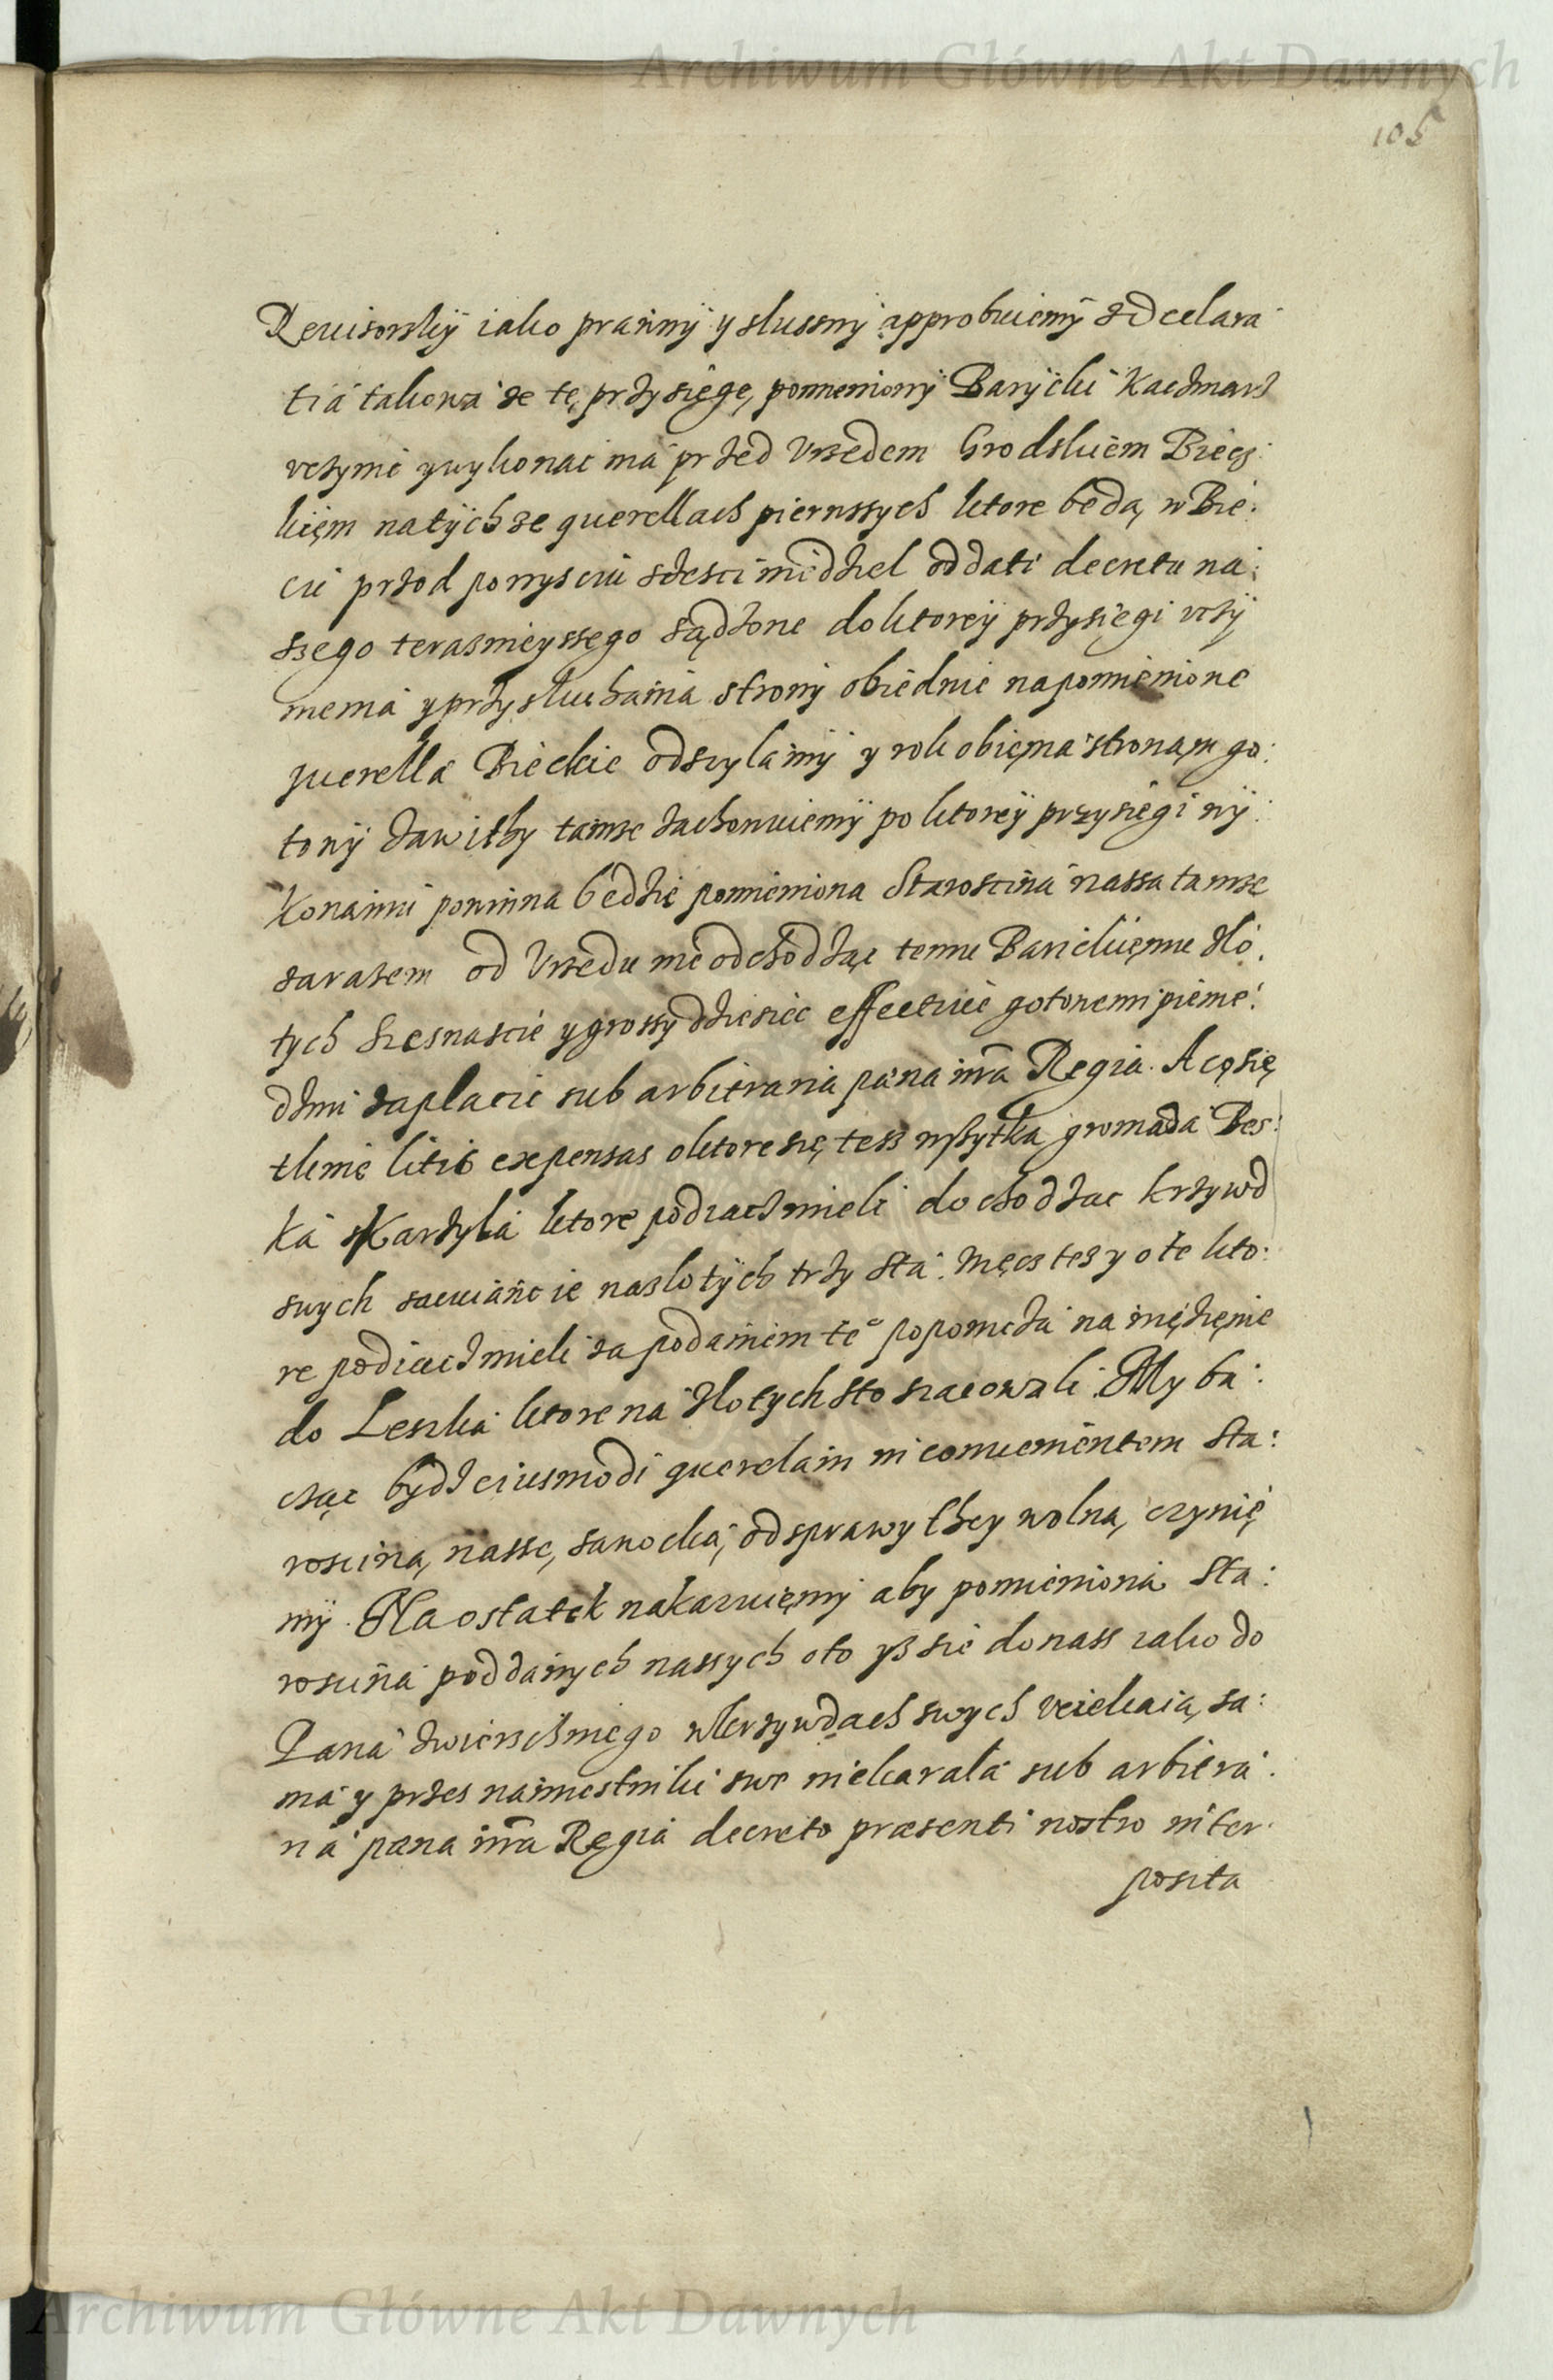 Archiwum Główne Akt Dawnych
105
Reuisorskÿ iako prawnÿ y slussny approbuiemy z Declara
tiá takową ze tę przysięgę pomieniony Barÿcki Kaczmarz
vczÿmi y wykonac má przed Vrzedem Grodskiem Biecz:
kięm na tÿchze querellach pierwssych ktore będą w Bie:
czu przod po wysciu szesci niedziel od dati decretu na:
szego terasnieyssego sądzone do ktoreÿ przysięgi vczÿ
nienia y przysłuchania strony obiedwie na pomienione
querella Bieckie odsylamÿ y rok obięma stronąm go:
towÿ zawitÿ tamze zachowuiemÿ po ktoreÿ przysięgi wÿ:
konaniu powinna będzie pomieniona Starościna nassa tamze
zarazem od Vrzedu nie odchodząc temu Barickięmu zło:
tych szesnascie y grossy dziesięc effectiue gotowemi pienię:
dzmi zaplacic sub arbitraria pæna nra Regia. A co się
tknie litis expensas o ktore się tesz wszytka gromada Bes:
ká Karzyla ktore podiąc mieli dochodząc krzywd
swych szacuiąc ie na zlotÿch trzy sta. Więcz tesz y o te kto:
re podiąc mieli za podaniem te° popowcza na więzięnie
do Leska ktore na złotych sto szacowali. My ba:
cząc bydz eiusmodi querelam inconuenientem Sta:
roscinę nasse, sanocka, od sprawy they wolną czynię
mÿ. Na ostatek nakazuięmy aby pomieniona Sta:
roscina poddanych nassych o to ysz się do nass iako do
Pana zwierzchnięgo w krzywdach swych vciekaią, sa:
ma y przes namiestniki swe nie karala sub arbitra
ria pæna nra Regia decreto præsenti nostro inter
posita
Archiwum Główne Akt Dawnych